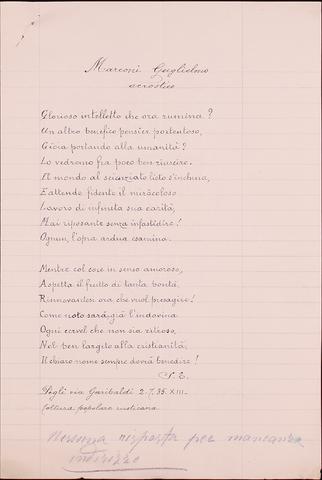 Marconi Guglielmo
acrostico
Glorioso intelletto che ora rumina?
Un altro benefico pensier portentoso,
Gioia portando alla umanità?
Lo vedremo fra poco ben riuscire.
Il mondo al scienziato lieto s'inchina,
E attende fidente il miracoloso
Lavoro di infinita sua carità,
Mai riposante senza infastidire!
Ognun, l'opra ardua esamina.
Mentre col core in senso amoroso,
Aspetta il frutto di tanta bontà,
Rinnovandosi ora che vuol presagire!
Come noto sarà già l'indovina
Ogni cervel che non sia ritroso,
Nel ben largito alla cristianità,
Il chiaro nome sempre dovrà benedire!
Pegli via Garibaldi 2.7.35.XIII.
coltura popolare rusticana
Nessuna risposta per mancanza
indirizzo